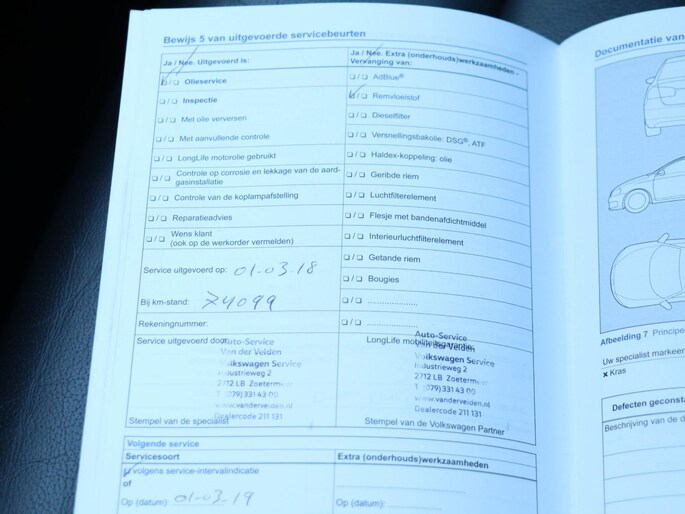 Bewijs 5 van uitgevoerde servicebeurten
Ja / Nee. Uitgevoerd is:
Olieservice
Inspectie
Met olie verversen
Met aanvullende controle
LongLife motorolie gebruikt
Controle op corrosie en lekkage van de aard-
gasinstallatie
Controle van de koplampafstelling
Reparatieadvies
Wens klant
(ook op de werkorder vermelden)
Service uitgevoerd op: 01-03-18
Bij km-stand: 74099
Rekeningnummer:
Service uitgevoerd door:
Auto-Service
Van der Velden
Volkswagen Service
Industrieweg 2
2712 LB Zoetermeer
T (079) 331 43 00
www.vandervelden.nl
Dealercode 211 131
Stempel van de specialist
Ja / Nee. Extra (onderhouds)werkzaamheden -
Vervanging van:
AdBlue®
Remvloeistof
Dieselfilter
Versnellingsbakolie: DSG®, ATF
Haldex-koppeling: olie
Geribde riem
Luchtfilterelement
Flesje met bandenafdichtmiddel
Interieurluchtfilterelement
Getande riem
Bougies
LongLife mobiliteitsgarantie
Auto-Service
Van der Velden
Volkswagen Service
Industrieweg 2
2712 LB Zoetermeer
T (079) 331 43 00
www.vandervelden.nl
Dealercode 211 131
Stempel van de Volkswagen Partner
Volgende service
Servicesoort
volgens service-intervalindicatie
of
Op (datum): 01-03-19
Extra (onderhouds)werkzaamheden
Op (datum):
Documentatie van
Afbeelding 7 Principe
Uw specialist markeer
× Kras
Defecten geconsta
Beschrijving van de d